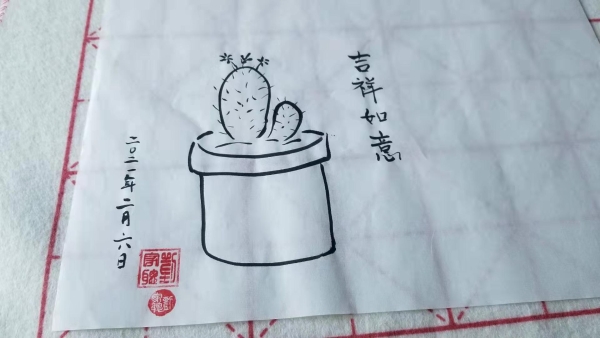 吉祥如意
二〇二一年二月六日